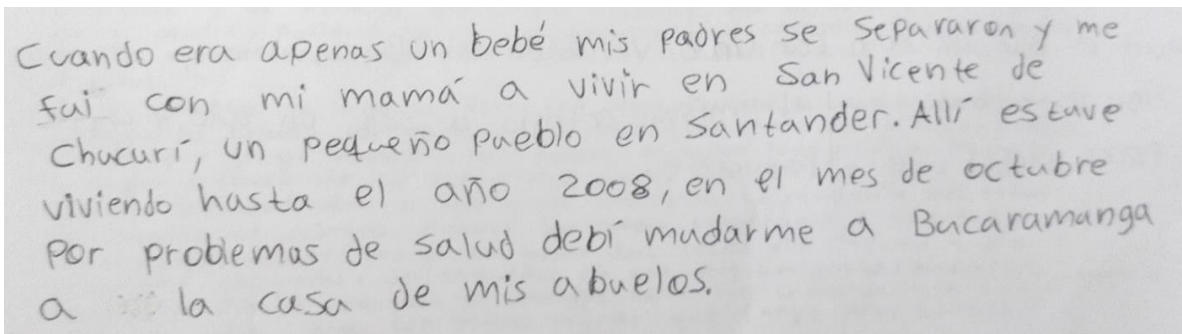 Cuando era apenas un bebé mis padres se separaron y me
fui con mi mamá a vivir en San Vicente de
Chucurí, un pequeño pueblo en Santander. Allí estuve
viviendo hasta el año 2008, en el mes de octubre
por problemas de salud debí mudarme a Bucaramanga
a la casa de mis abuelos.